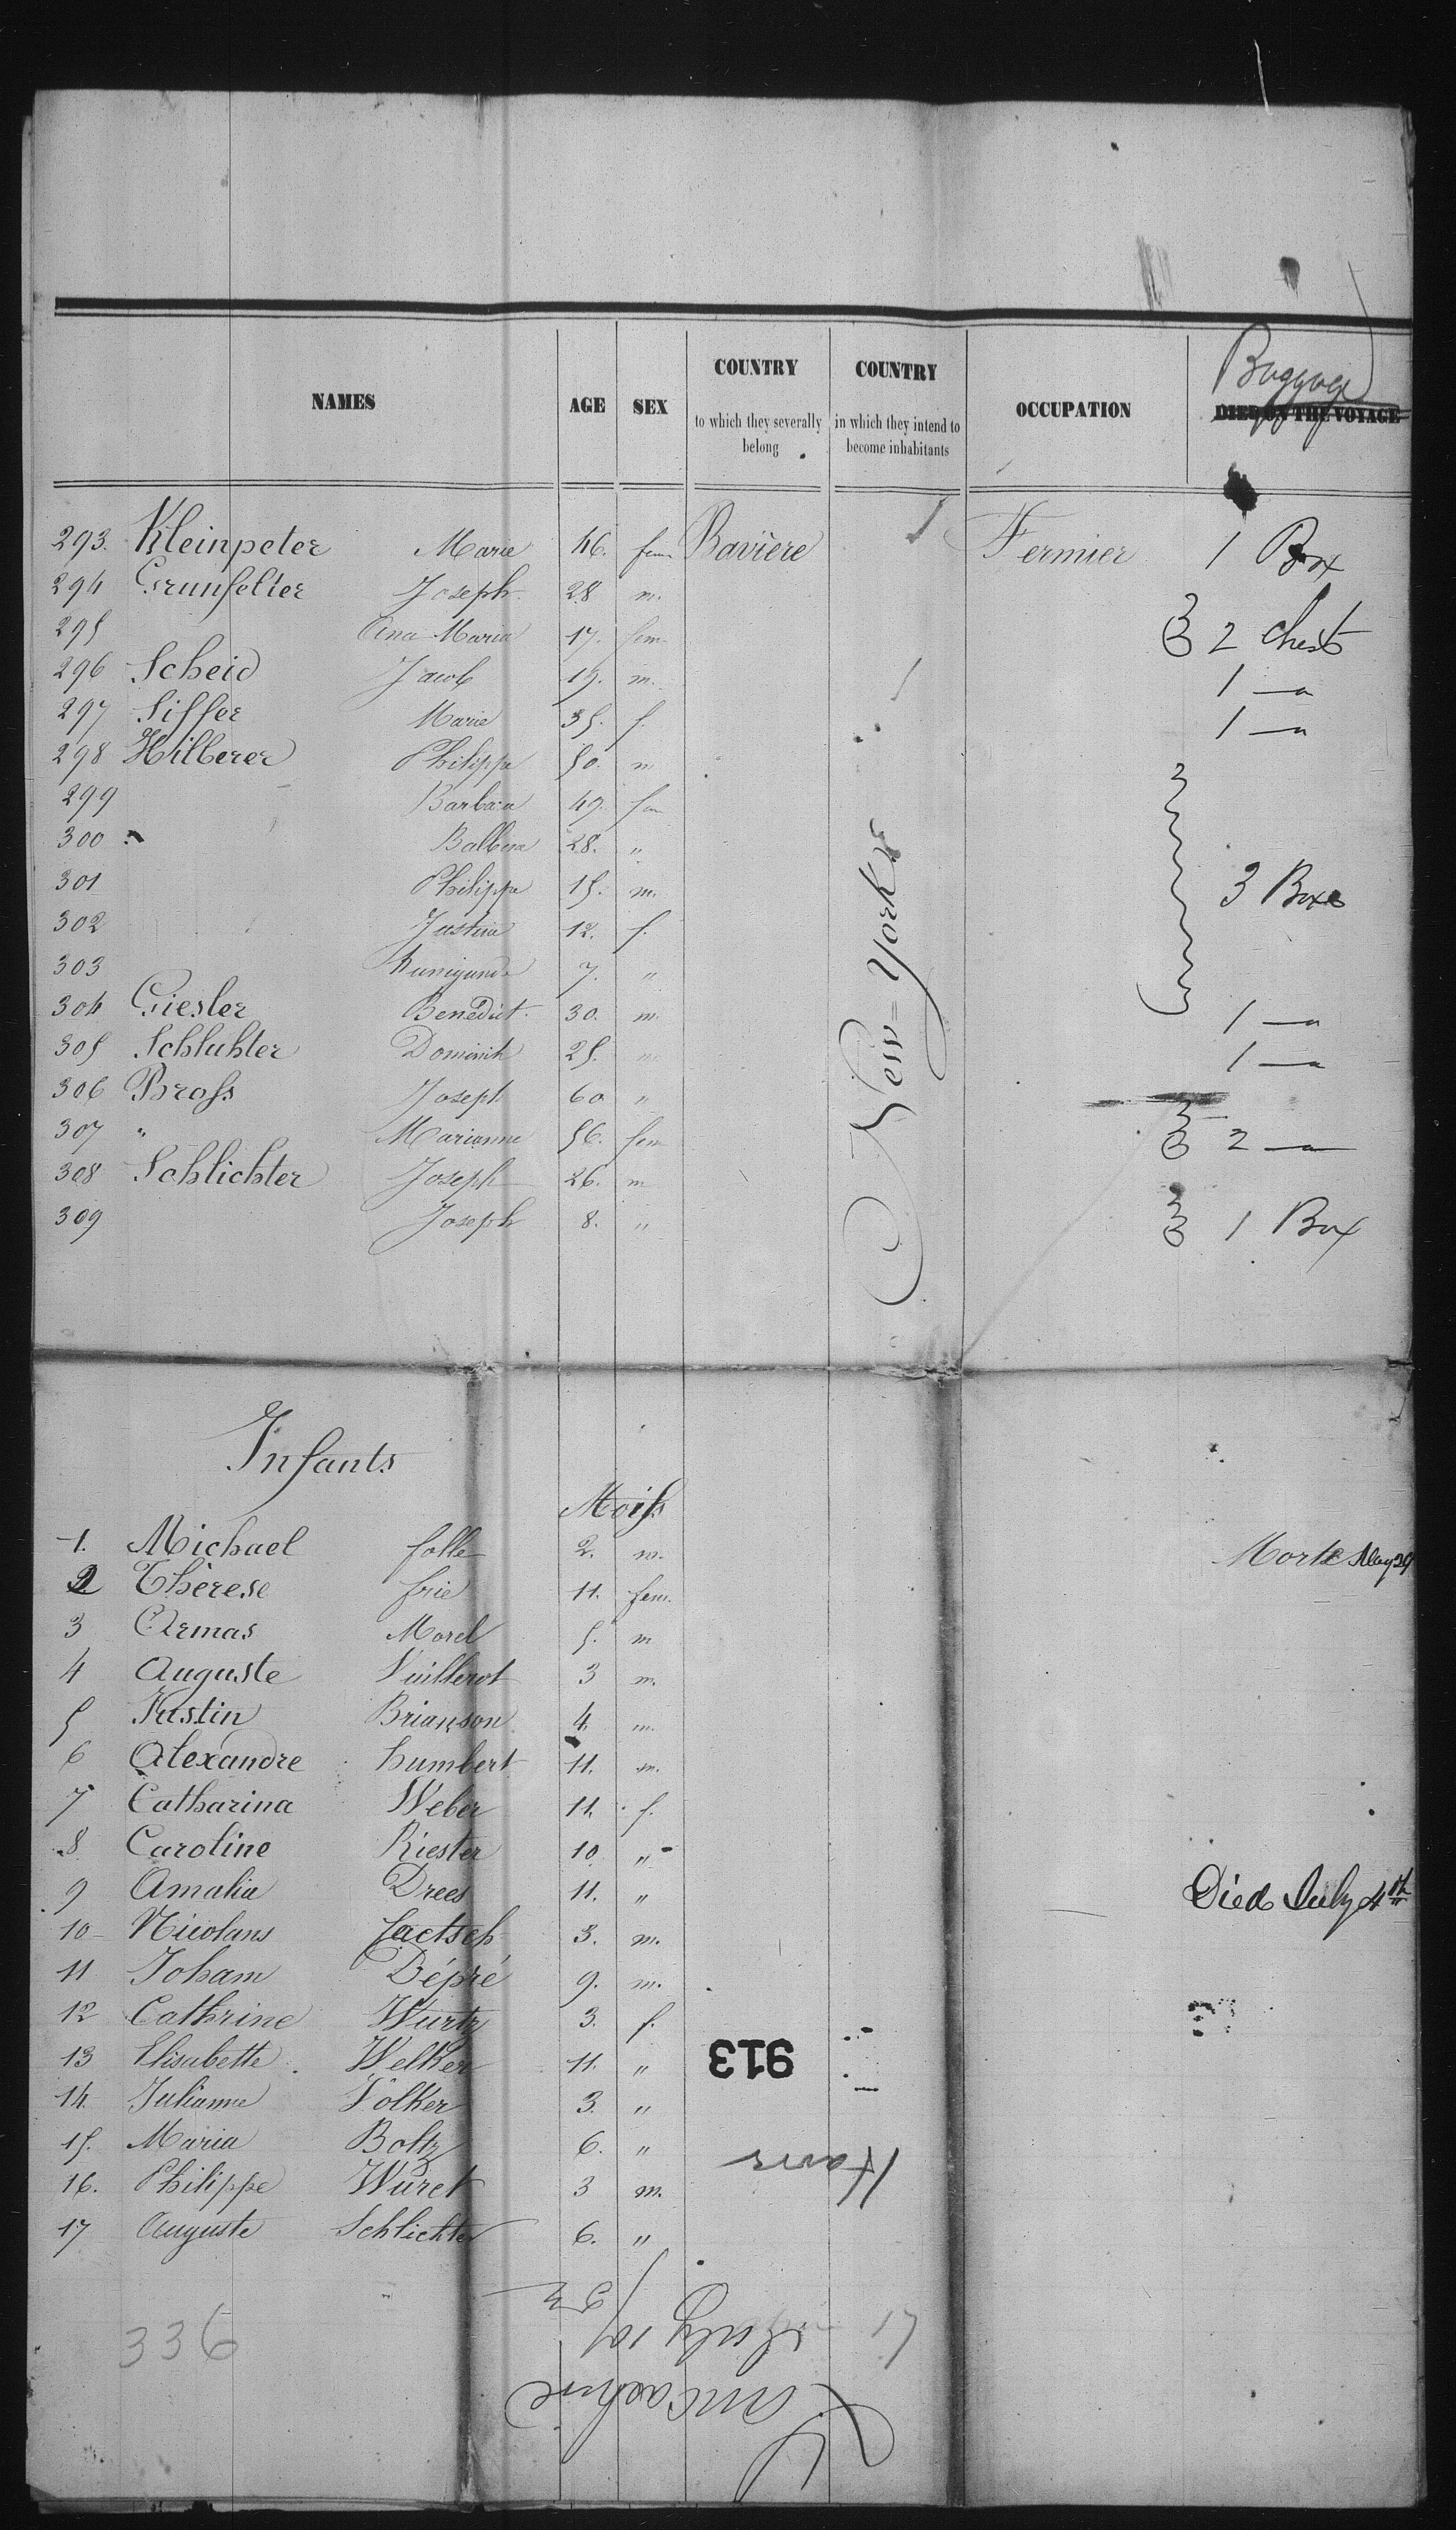 Baggage
NAMES AGE SEX COUNTRY to which they severally belong COUNTRY in which they intend to become inhabitants OCCUPATION DIED ON THE VOYAGE
293. Kleinpeter Marie 46. fem Bavière Fermier 1 Box
294 Grunfelter Joseph 28 m.
295 Ana Maria 17. fem 2 Chest
296 Scheid Jacob 19. m. 1 —"
297 Siffer Marie 35. f. 1 —"
298 Hilberer Philippe 50. m
299 Barbara 49. fem
300 Balbina 28. "
301 Philippe 15. m. 3 Boxes
302 Justina 12. f.
303 Kunigunde 7. "
304 Giesler Benedict. 30. m. 1 —"
305 Schluhter Dominik 25. m 1 —"
306 Bross Joseph 60 "
307 " Marianne 56. fem 2 —"
308 Schlichter Joseph 26. m
309 Joseph 8. " 1 Box
New=York
Infants
Mois
1. Michael folle 2. m. Morte May 29
2 Thèrese frie 11. fem.
3 Armas Morel 5. m
4 Auguste Vuillerot 3 m.
5 Justin Brianson 4. m.
6 Alexandre humbert 11. m.
7 Catharina Weber 11. f.
8 Caroline Riester 10. "
9 Amalia Drees 11. " Died July 4th
10 Nicolaus Jactsch 3. m.
11 Joham Dépré 9. m.
12 Cathrine Wurtz 3. f.
13 Elisabette Welker 11. "
14. Julianne Volker 3. "
15. Maria Boltz 6. "
16. Philippe Würet 3 m.
17 Auguste Schlichter 6. "
913
Havre
336
17
July 10/
Lancashire